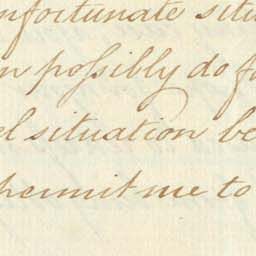 nfortunate situ
n poſsibly do fo
el situation be
permit me to